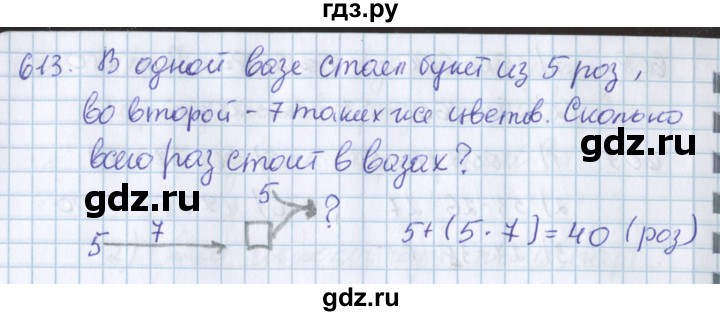 гдз.ру
613. В одной вазе стоел букет из 5 роз,
во второй - 7 таких же цветов. Сколько
всего раз стоит в вазах?
gdz.ru
gdz.ru
5 7 5 ?
5+(5·7)=40 (роз)
gdz.ru